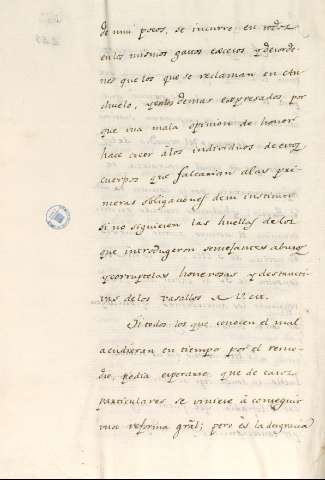 de mui pocos, se incurre en todos
en los mismos gastos excesos y desorde-
nes que los que se reclaman en
y en los demas expresados, por
que una mala opinion de honor
hace creer a los individuos de estos
cuerpos que faltarian a las pri-
meras obligaciones de su instituto
si no siguiesen las huellas de los
que introdugeron semejantes abusos
y corruptelas honerosas y destructi-
vas de los vasallos de V. M.
Si todos los que conocen el mal
acudieran en tiempo por el reme-
dio, podia esperarse que de casos
particulares se viniese à conseguir
una reforma grãl; pero ès la desgracia